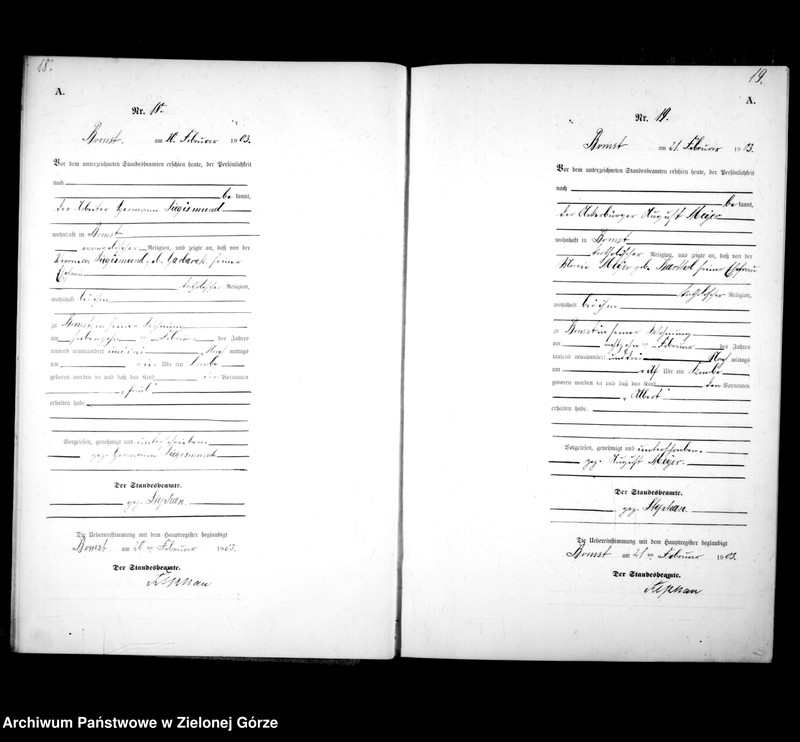 18.
A.
Nr. 18.
Bomst. am 20. Februar 1903.
Vor dem unterzeichneten Standesbeamten erschien heute, der Persönlichkeit
nach
be kannt,
der Arbeiter Hermann Sigismund
wohnhaft in Bomst
evangelischer Religion, und zeigte an, daß von der
Sigismund geb. seiner
Ehefrau
katholischer Religion,
wohnhaft bei ihm
zu Bomst in seiner Wohnung
am siebenzehn ten Februar des Jahres
tausend neunhundert und drei Nach mittags
um Uhr ein Knabe
geboren worden sei und daß das Kind den Vornamen
"Paul"
erhalten habe.
Vorgelesen, genehmigt und unterschrieben.
gez. Hermann Sigismund
Der Standesbeamte.
gez. Stephan.
Die Uebereinstimmung mit dem Hauptregister beglaubigt
Bomst am 20ten Februar 1903.
Der Standesbeamte.
Stephan
19.
A.
Nr. 19.
Bomst am 21. Februar 1903.
Vor dem unterzeichneten Standesbeamten erschien heute, der Persönlichkeit
nach
be kannt,
der Ackerbürger August Meyer
wohnhaft in Bomst
katholischer Religion, und zeigte an, daß von der
Maria Meyer geb. seiner Ehefrau
katholischer Religion,
wohnhaft bei ihm
zu Bomst in seiner Wohnung
am achtzehn ten Februar des Jahres
tausend neunhundert und drei Nach mittags
um elf Uhr ein Knabe
geboren worden sei und daß das Kind den Vornamen
"Albert"
erhalten habe.
Vorgelesen, genehmigt und unterschrieben.
gez. August Meyer.
Der Standesbeamte.
gez. Stephan.
Die Uebereinstimmung mit dem Hauptregister beglaubigt
Bomst am 21ten Februar 1903.
Der Standesbeamte.
Stephan
Archiwum Państwowe w Zielonej Górze